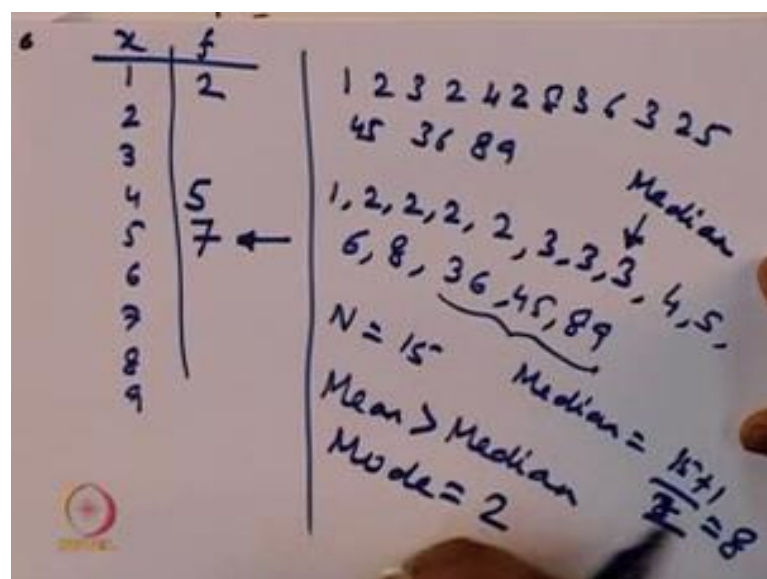 x f
1 2
2
3
4 5
5 7 ←
6
7
8
9
1 2 3 2 4 2 8 3 6 3 2 5
45 36 89
Median
1, 2, 2, 2, 2, 3, 3, 3, 4, 5,
6, 8, 36, 45, 89
N = 15
Median = 15+1/2 = 8
Mean > Median
Mode = 2